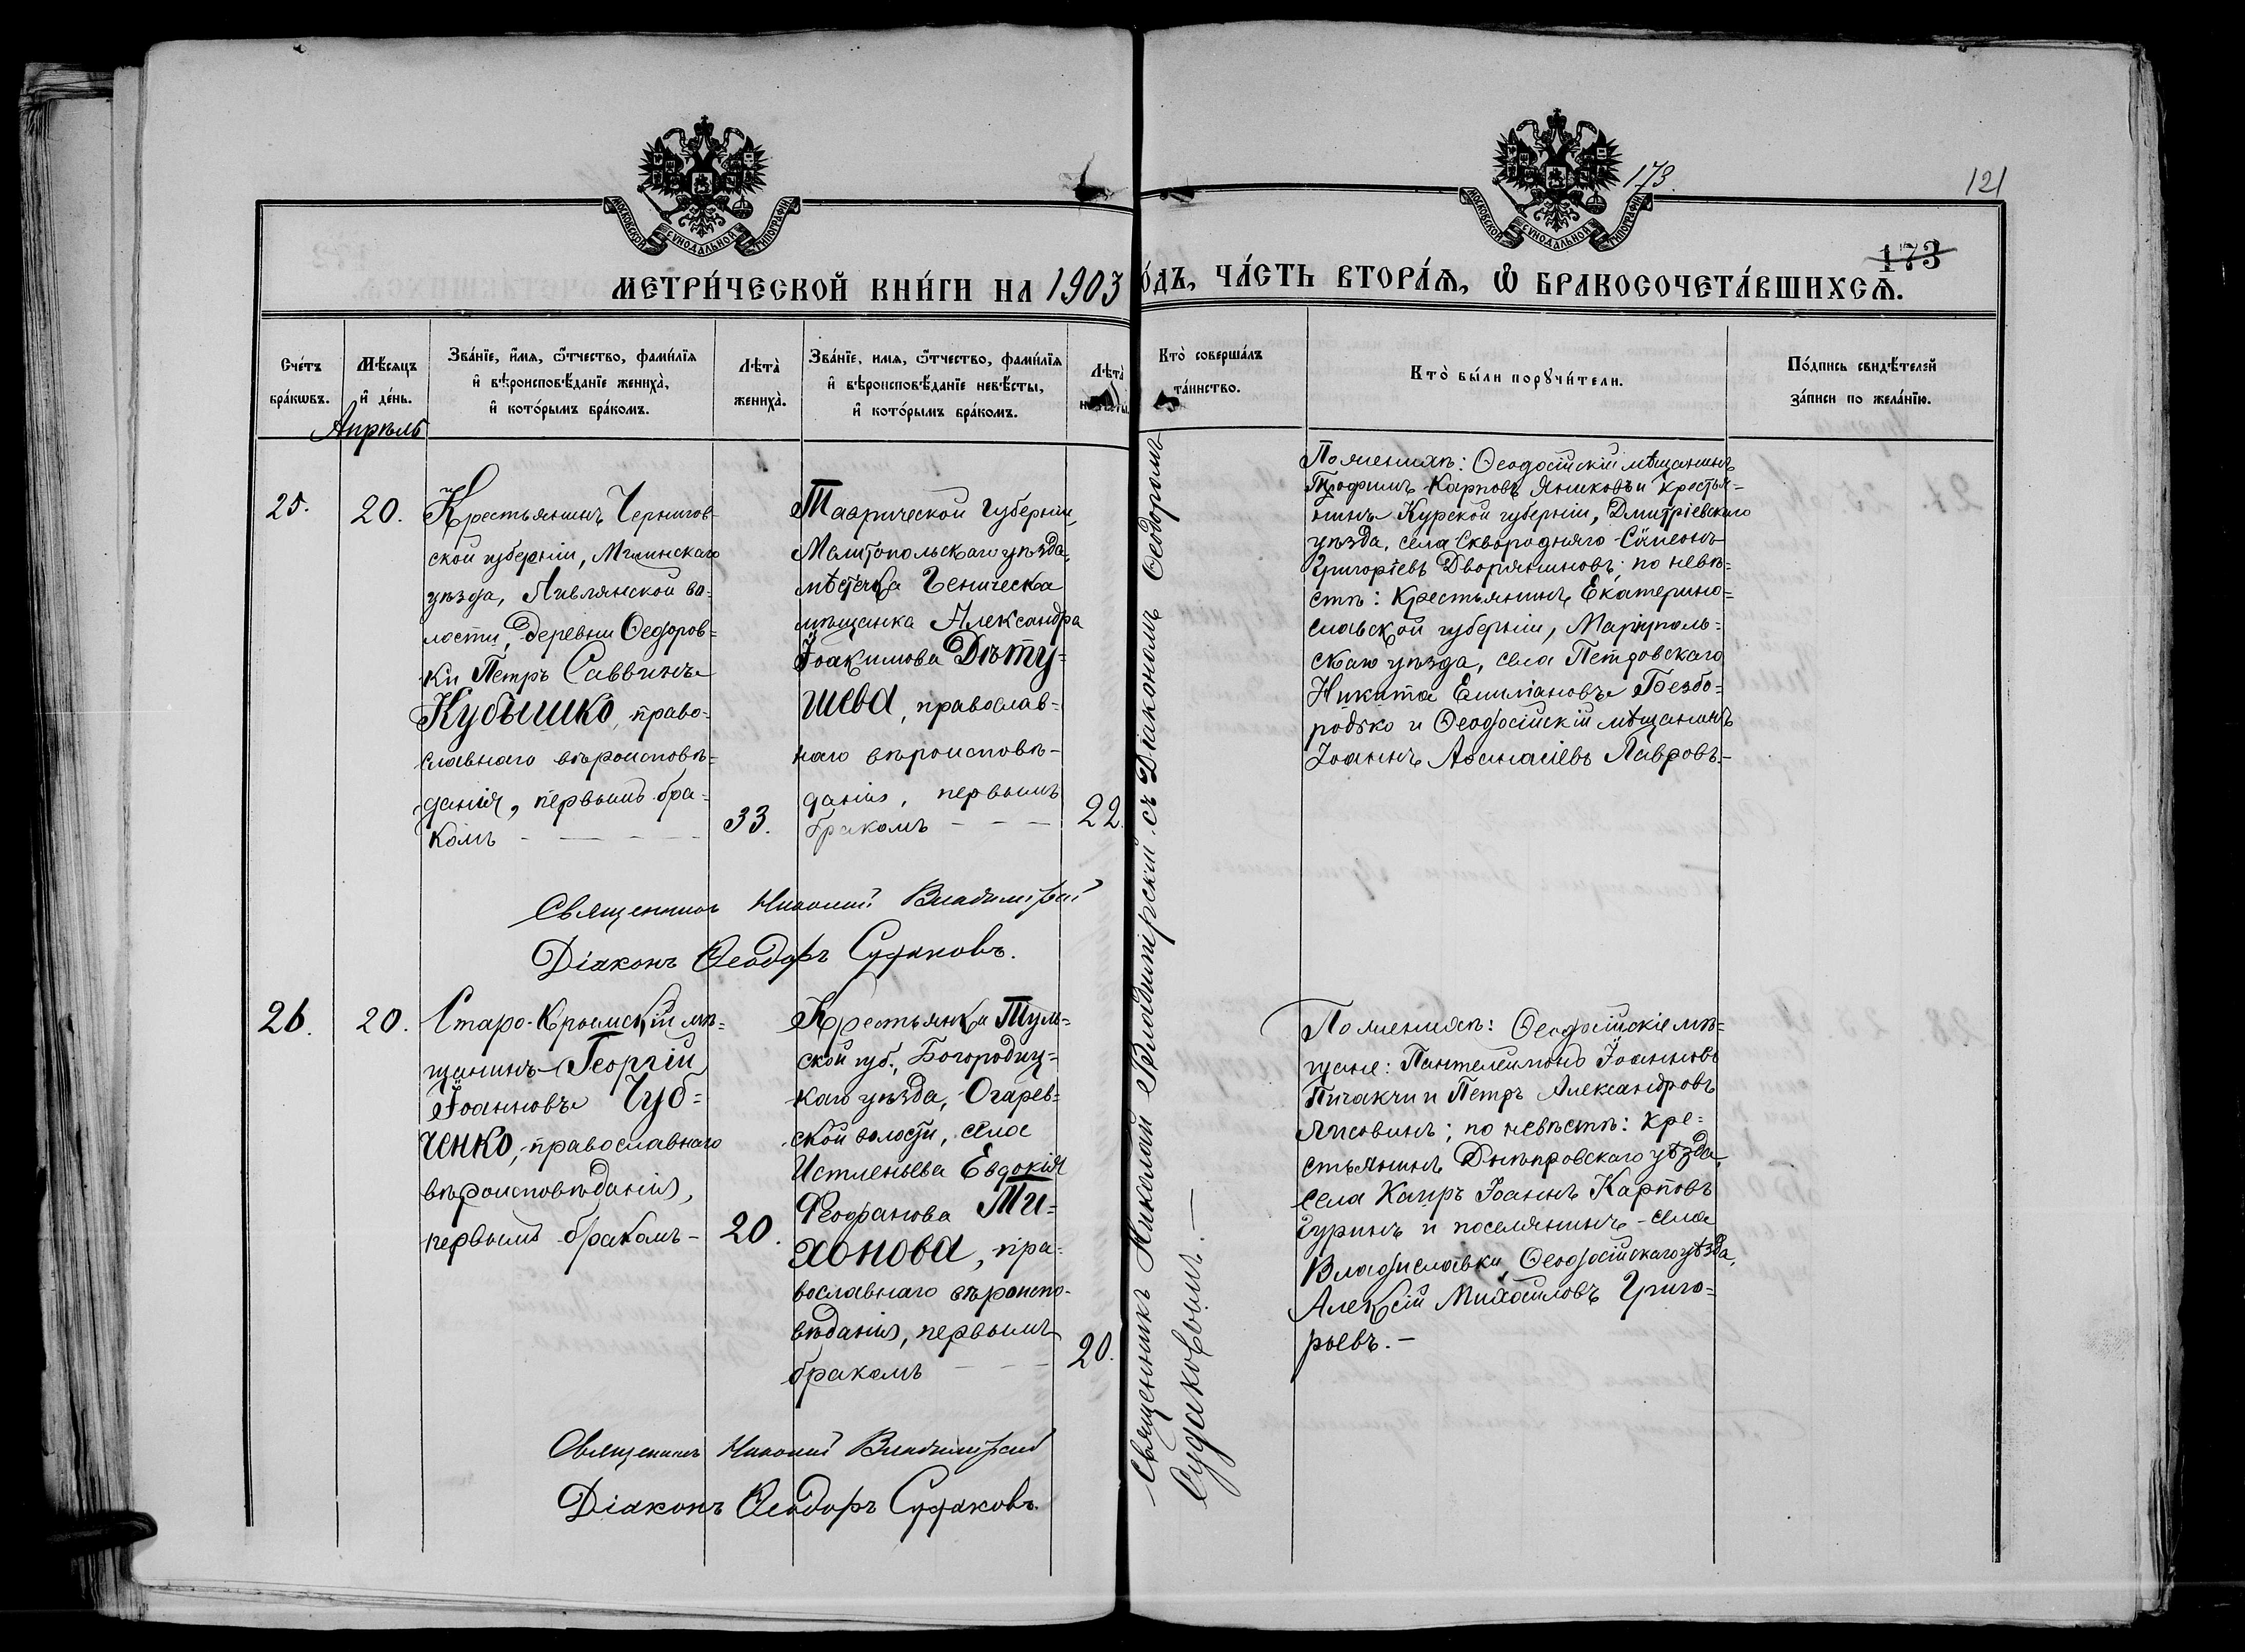 173.
121
173
МОСКОВСКОЙ СѴНОДАЛЬНОЙ ТИПОГРАФІИ
МОСКОВСКОЙ СѴНОДАЛЬНОЙ ТИПОГРАФІИ
МЕТРИ́ЧЕСКОЙ КНИ́ГИ НА 1903 ГО́ДЪ, ЧА́СТЬ ВТОРА́Ѧ, Ѽ БРАКОСОЧЕТА́ВШИХСѦ.
Сче́тъ
бра́кѡвъ.
Мѣ́сяцъ
и҆ де́нь.
Зва́нїе, и҆́мя, ѻ҆́тчество, фами́лїя
и҆ вѣроисповѣ́данїе жениха̀,
и҆ кото́рымъ бра́комъ.
Лѣта̀
жениха̀.
Зва́нїе, имя, ѻ҆́тчество, фами́лїя
и҆ вѣроисповѣ́данїе невѣ́сты,
и҆ кото́рымъ бра́комъ.
Лѣта̀
невѣ́сты.
Кто̀ соверша́лъ
та́инство.
Кто̀ бы́ли порꙋчи́тели.
По́дпись свидѣ́телей
за́писи по жела́нїю.
Апрѣль
25.
20.
Крестьянинъ Чернигов-
ской губерніи, Мглинскаго
уѣзда, Лявлянской во-
лости, деревни Ѳедоров-
ки Петръ Саввинъ
Кубышко, право-
славнаго вѣроисповѣ-
данія, первымъ бра-
комъ
33.
Таврической губерніи,
Мелитопольскаго уѣзда,
мѣстечка Геническа
мѣщанка Александра
Іоакимова Дѣту-
шева, православ-
наго вѣроисповѣ-
данія, первымъ
бракомъ
22.
Священникъ Николай Владимірскій съ Діакономъ Ѳеодоромъ
Судаковымъ.
По женихѣ: Ѳеодосійскій мѣщанинъ
Трофимъ Карповъ Яшковъ и крестья-
нинъ Курской губерніи, Дмитріевскаго
уѣзда, села Сквородняго Сѵмеонъ
Григоріевъ Дворяниновъ; по невѣ-
стѣ: Крестьянинъ Екатерино-
славской губерніи, Маріуполь-
скаго уѣзда, села Петровскаго
Никита Емиліановъ Безбо-
родько и Ѳеодосійскій мѣщанинъ
Іоаннъ Аѳанасіевъ Лавровъ.
Священникъ Николай Владимірскій
Діаконъ Ѳеодоръ Судаковъ.
26.
20.
Старо-Крымскій мѣ-
щанинъ Георгій
Іоанновъ Чуб-
ченко, православнаго
вѣроисповѣданія,
первымъ бракомъ
20.
Крестьянка Туль-
ской губ., Богородиц-
каго уѣзда, Огарев-
ской волости, села
Истленьева Евдокія
Ѳеофанова Ти-
хонова, пра-
вославнаго вѣроиспо-
вѣданія, первымъ
бракомъ
20.
По женихѣ: Ѳеодосійскіе мѣ-
щане: Пантелеимонъ Іоанновъ
Пичакчи и Петръ Александровъ
Лисовинъ; по невѣстѣ: кре-
стьянинъ Днѣпровскаго уѣзда,
села Каиръ Іоаннъ Карповъ
Гуринъ и поселянинъ села
Владиславки, Ѳеодосійскаго уѣзда,
Алексій Михаиловъ Григо-
рьевъ.
Священникъ Николай Владимірскій
Діаконъ Ѳеодоръ Судаковъ.